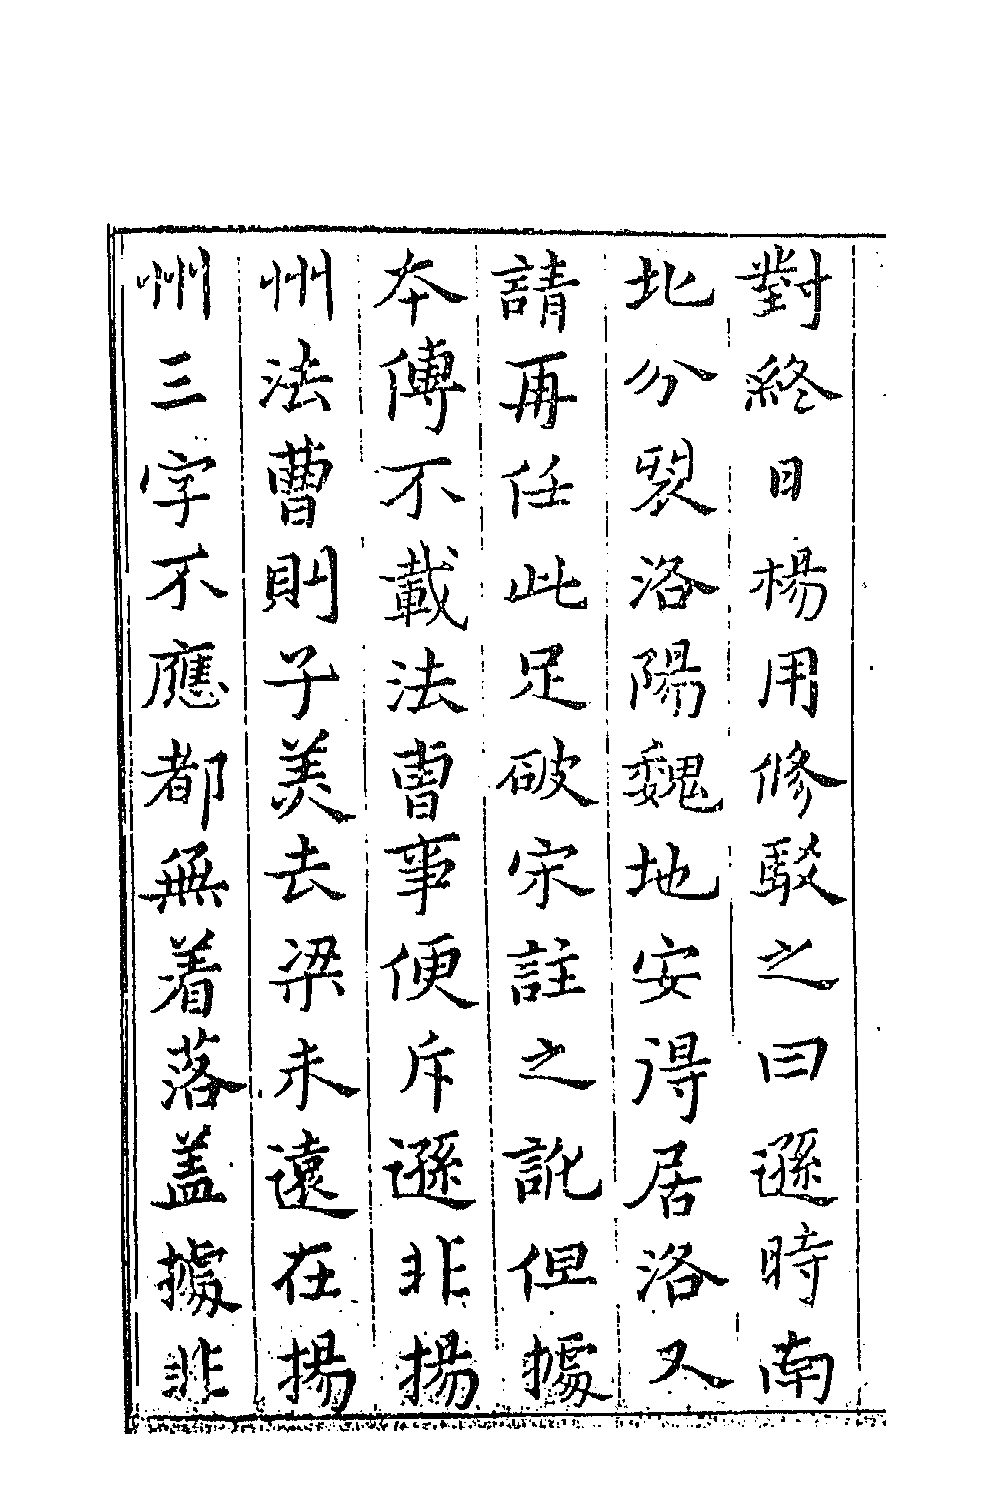 對終日楊用修駁之曰遜時南
北分裂洛陽魏地安得居洛又
請再任此足破宋註之訛但據
本傳不載法曹事便斥遜非揚
州法曹則子美去梁未遠在揚
州三字不應都無着落盖據非